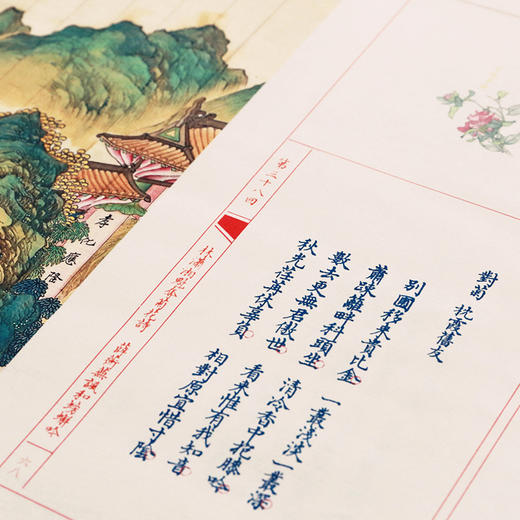 對菊 枕霞舊友
別圃移來貴比金 一叢淺淡一叢深
蕭踈籬畔科頭坐 清冷香中抱膝吟
數去更無君傲世 看來惟有我知音
秋光荏苒休辜負 相對原宜惜寸陰
第三十八回 林瀟湘魁奪菊花詩 薛蘅蕪諷和螃蟹吟 六八